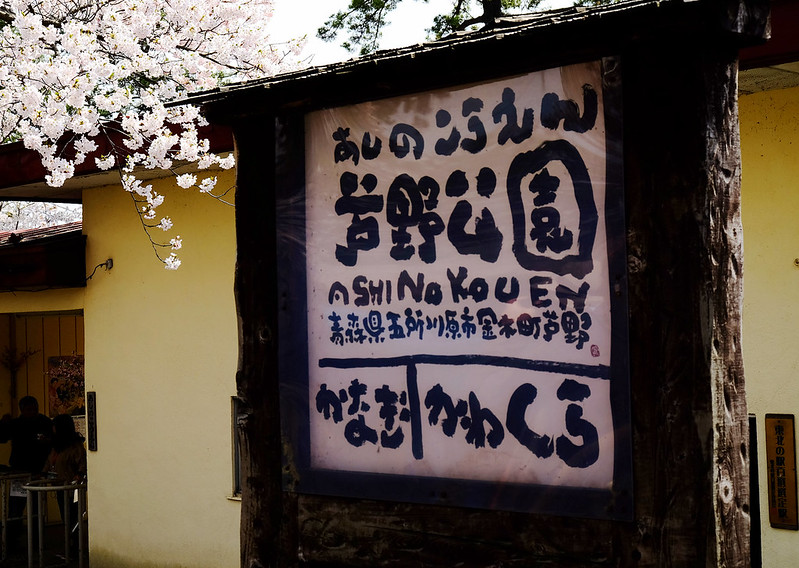 あしのこうえん
芦野公園
ASHINOKOUEN
青森県五所川原市金木町芦野
かなぎ
かわくら
東北の駅百選選定駅